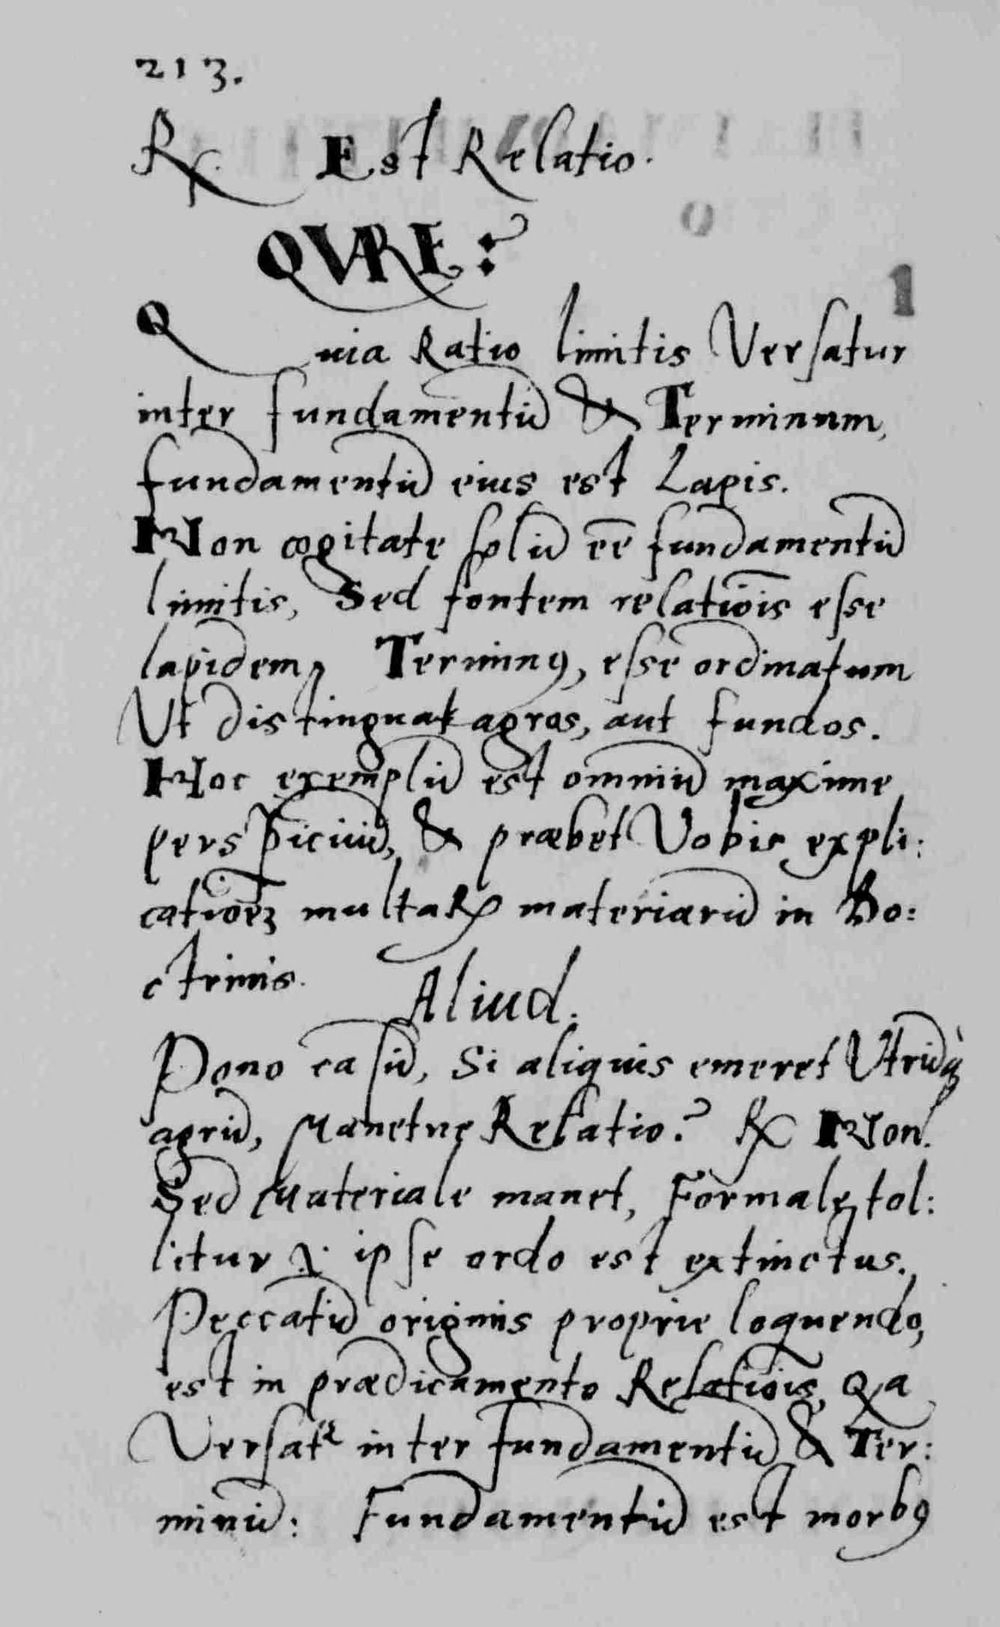 213.
℞. Est Relatio.
QVARE?
Quia Ratio limitis Versatur
inter fundamentū & Terminum,
fundamentū eius est Lapis.
Non cogitate solū eē fundamentū
limitis, Sed fontem relatiōis esse
lapidem, Terminꝰ, esse ordinatum
Vt distinguat agros, aut fundos.
Hoc exemplū est omniū maxime
perspicuū, & præbet Vobis expli:
catiōeꝫ multaꝝ materiarū in Do:
ctrinis.
Aliud.
Pono casū, Si aliquis emeret Vtrūqꝫ
agrū, Manetne Relatio? ℞ Non.
Sed Materiale manet, Formale tol:
litur .i. ipse ordo est extinctus.
Peccatū originis proprie loquendo,
est in prædicamento Relatiōis, Qa
Versatr inter fundamentū & Ter:
minū: Fundamentū est morbꝰ